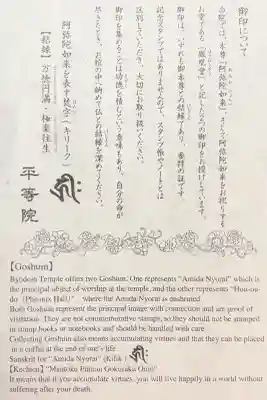 御印について
当院では、本尊「阿弥陀如来」、そして阿弥陀如来をお祀りする
お堂である「鳳凰堂」と記した二つの御印をお授けしています。
御印は、いずれも御本尊との結縁であり、参拝の証です。
記念スタンプではありませんので、スタンプ帳やノートとは
区別していただき、大切にお取り扱いください。
御印を集めることは功徳を積むという意味もあり、自分の命が
尽きたときに、お棺の中へ納めて仏との結縁を深めてください。
阿弥陀如来を表す梵字（キリーク）
【結縁】万徳円満・極楽往生
平等院
【Goshuin】
Byodoin Temple offers two Goshuin. One represents "Amida Nyorai" which is
the principal object of worship at the temple, and the other represents "Hou-ou-
do (Phoenix Hall)" where the Amida Nyorai is enshrined.
Both Goshuin represent the principal image with connection and are proof of
visitation. They are not commemorative stamps, so they should not be stamped
in stamp books or notebooks and should be handled with care.
Collecting Goshuin also means accumulating virtues and that they can be placed
in a coffin at the end of one's life.
Sanskrit for "Amida Nyorai" (Kilik)
【Kechien】"Mantoku Enman Gokuraku Oujo"
It means that if you accumulate virtues, you will live happily in a world without
suffering after your death.